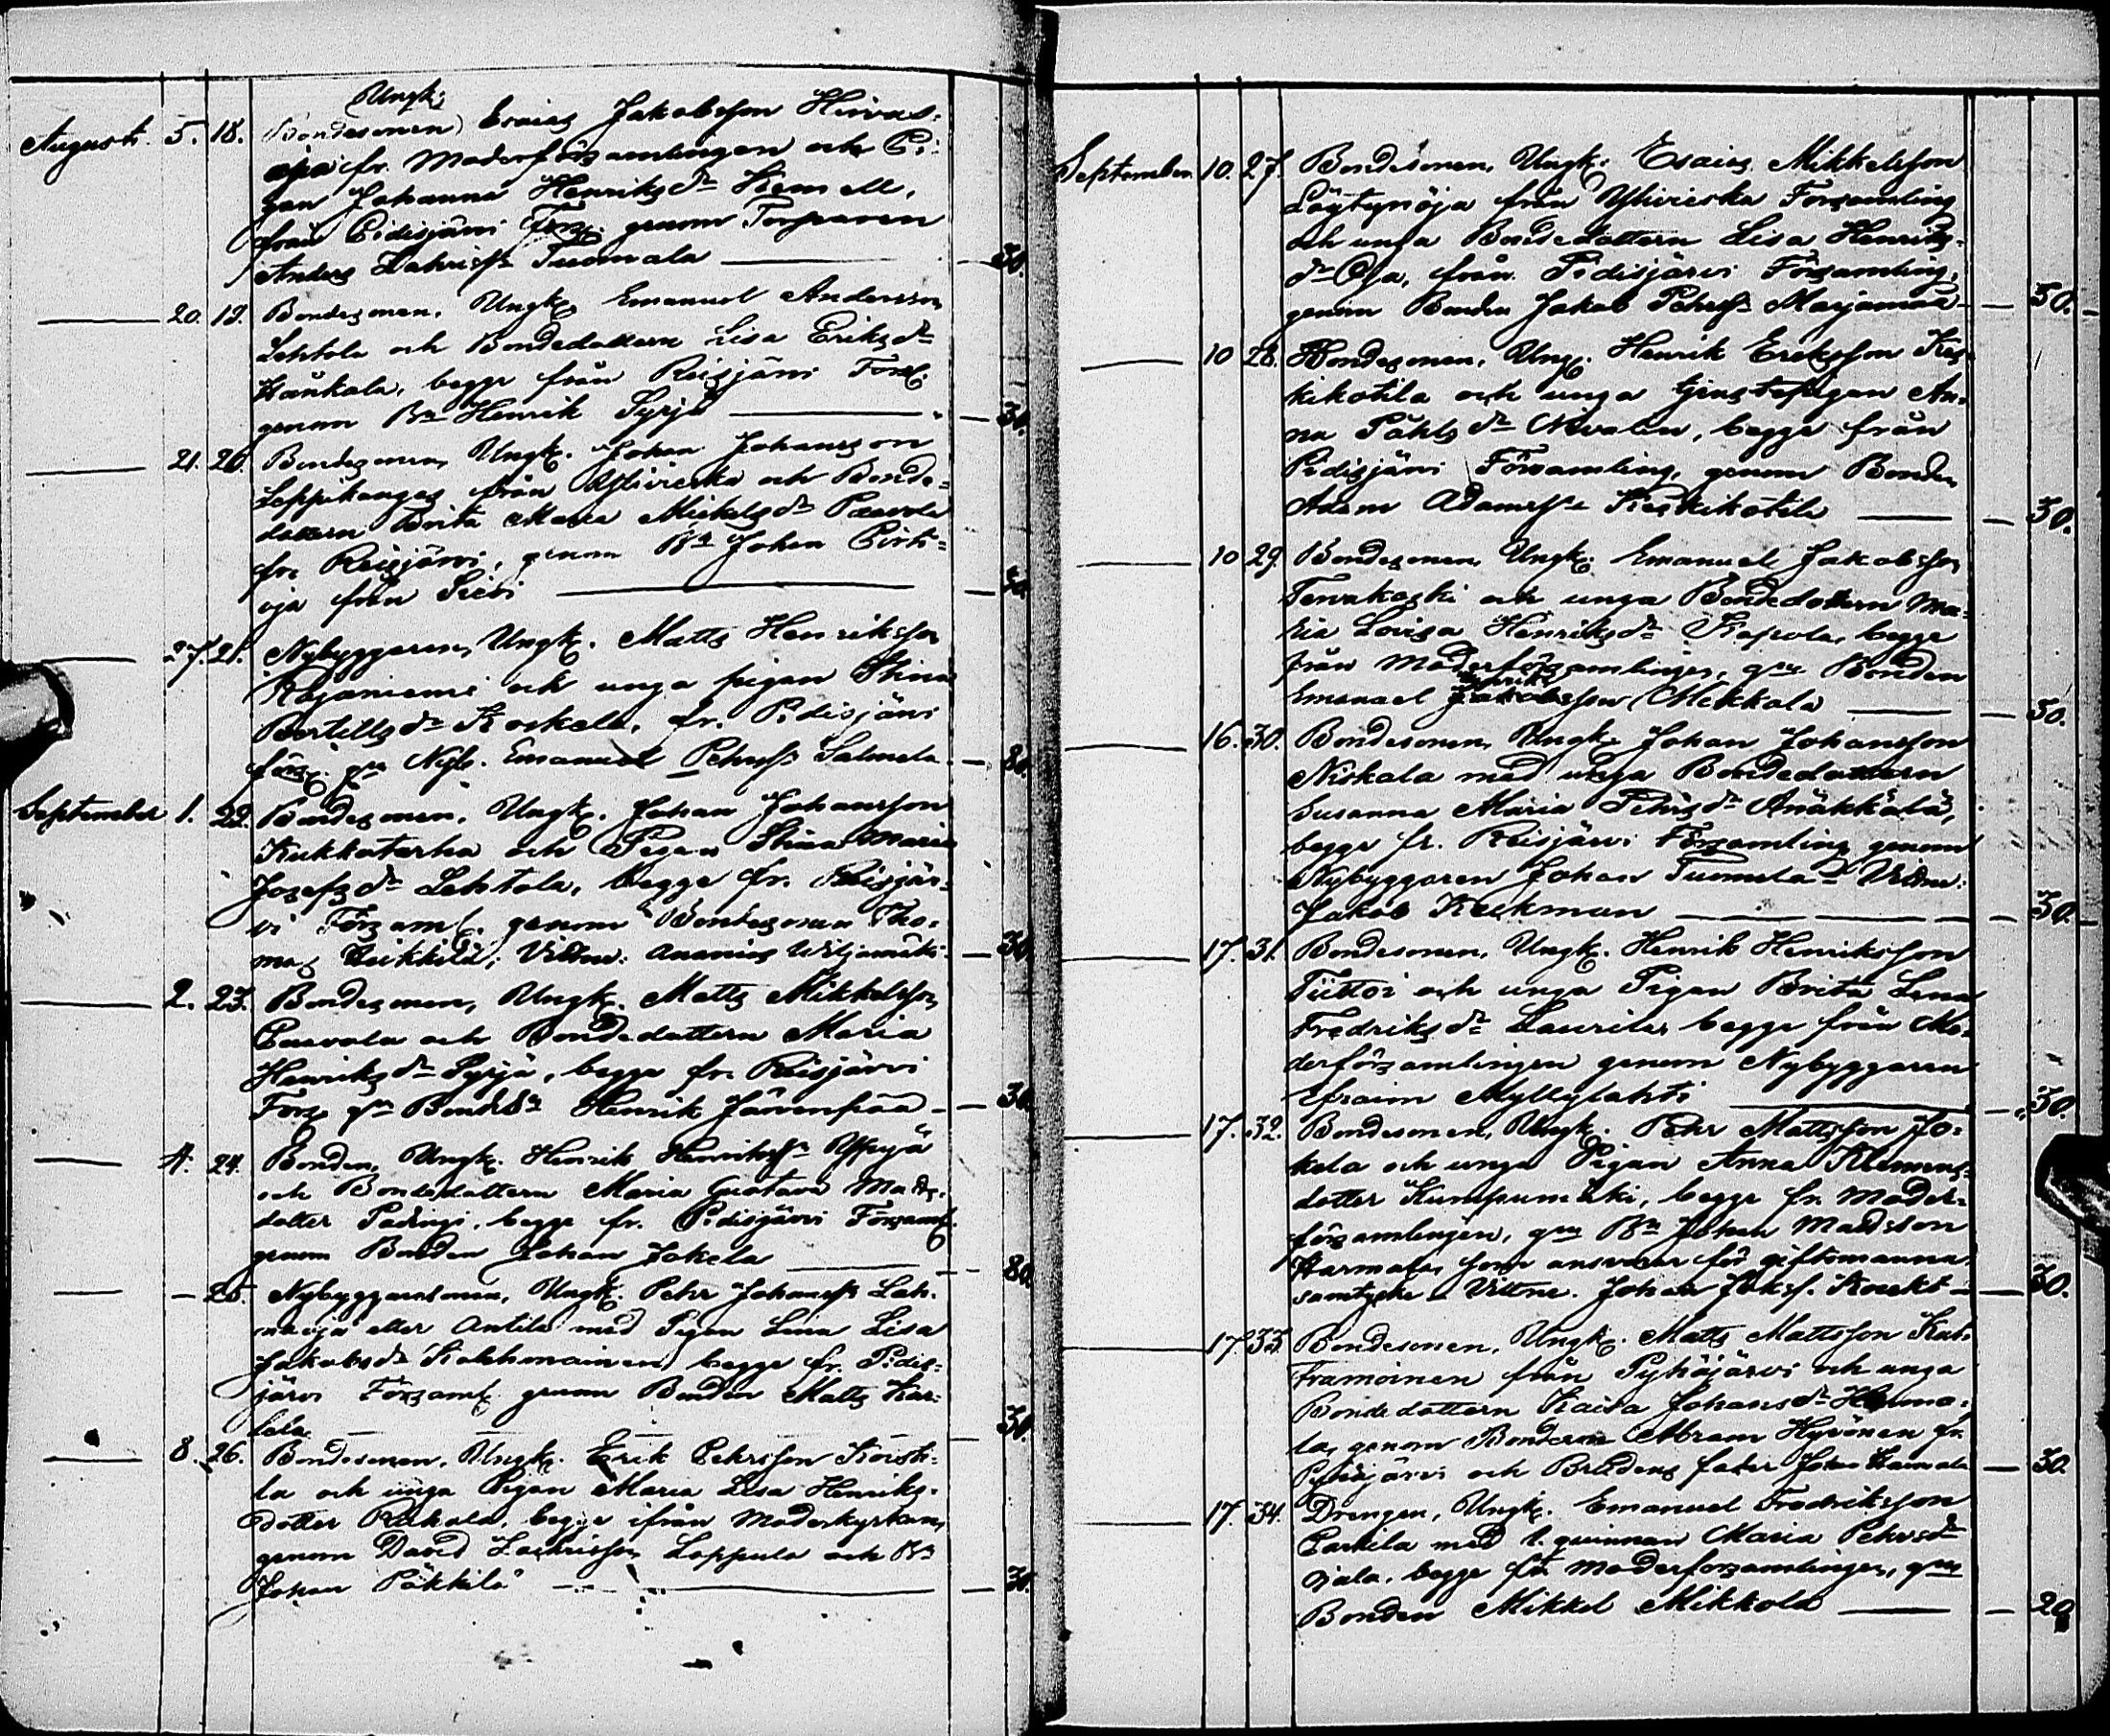 Ungk.
Augusti. 5. 18. Bondesonen Esaias Jakobsson Hirvas-
oja fr. Moderförsamlingen och Pi-
gan Johanna Henriksdr Kemell,
från Pidisjärvi Förs. genom Torparen
Anders Zachriss. Tuomala — 30.
20. 19. Bondesonen, Ungk. Emanuel Andersson
Lehtola och Bondedottern Lisa Eriksdr
begge från Reisjärvi Förs.
genom Bn Henrik Syrjä — 30.
21. 20. Bondesonen, Ungk. Johan Johansson
Leppikangas från Ylivieska och Bonde-
dottern Brita Maria Mickelsdr Paavola
fr. Reisjärvi, genom Bn Johan Pirti-
oja från Sievi —
27. 21. Nybyggaren, Ungk. Matts Henriksson
Rajaniemi och unga pigan Stina
Bertillsdr Koskela, fr. Pidisjärvi
förs. gm Nyb. Emanuel Pehrss. Salmela — 80.
September 1. 22. Bondesonen, Ungk. Johan Johansson
Kukkatarha och Pigan Stina Maria
Josefsdr Lehtola, begge fr. Reisjär-
vi Förs aml. genom Bondesonen Tho-
mas Heikkilä; Vittne: Ananias Wiljamäki — 30.
2. 23. Bondesonen, Ungk. Matts Mikkelsson
Paavola och Bondedottern Maria
Henriksdr Syrjä, begge fr. Reisjärvi
Förs gm Bondes. Henrik Järvenpää — 30.
4. 24. Bonden, Ungk. Henrik Henrikss. Yppyä
och Bondedottern Maria Gustava Matts-
dotter Padingi, begge fr. Pidisjärvi Församl.
genom Bonden Johan Jokela — 80.
— 25. Nybyggaresonen, Ungk. Pehr Johanss. Lah-
naoja eller Antila med Pigan Lina Lisa
Jakobsdr Kolehmainen, begge fr. Pidis-
järvi Församl. genom Bonden Matts Kar-
lela — 30.
8. 26. Bondesonen, Ungk. Erik Pehrsson Koski-
la och unga Pigan Maria Lisa Henriks-
dotter Rahala, begge ifrån Moderkyrkan,
genom David Zachrisson Loppula och Bn
Johan Päkkilä — 30.
September. 10. 27. Bondesonen, Ungk. Esaias Mikkelsson
Löytynöja från Ylivieska Församling
och unga Bondedottern Lisa Henriks-
dr Oja, från Pidisjärvi Församling,
genom Bonden Jakob Pehrss. Marjamaa — 50.
10 28. Bondesonen, Ungk. Henrik Eriksson Kes-
kikotila och unga tjenstepigan An-
na Påhlsdr Nivalin, begge från
Pidisjärvi Församling, genom Bonden
Adam Adamss. Keskikotila — 50.
10 29. Bondesonen, Ungk. Emanuel Jakobsson
Tervakoski och unga Bondedottern Ma-
ria Lovisa Henriksdr Rapola, begge
från Moderförsamlingen, gm Bonden
Henriks
Emanuel Jakobsson Mekkala — 50.
16. 30. Bondesonen, Ungk. Johan Johansson
Niskala med unga Bondedottern
Susanna Maria Pehrsdr Änäkkälä,
begge fr. Reisjärvi Församling genom
Nybyggaren Johan Tuomela – Vittne:
Jakob Keckman — 30.
17. 31. Bondesonen, Ungk. Henrik Henriksson
Tiittoi och unga Pigan Brita Lena
Fredriksdr Laurila, begge från Mo-
derförsamlingen genom Nybyggaren
Efraim Myllylahti — 30.
17. 32. Bondesonen, Ungk. Pehr Mattsson Jo-
kela och unga Pigan Anna Klemens-
dotter Kumpumäki, begge fr. Moder-
församlingen, gm Bn Johan Mattsson
Harmala, som ansvarar för giftomanna-
samtycke – Vittne. Johan Jaks. Kouki — 30.
17. 33. Bondesonen, Ungk. Matts Mattsson Kat-
tramoinen från Pyhäjärvi och unga
Bondedottern Kaisa Johansdr Hauma-
la, genom Bonderne Abram Hyvönen fr.
Pyhäjärvi och Brudens fader Johan Haumala — 30.
17. 34. Drengen, Ungk. Emanuel Fredriksson
Parkila med l. qvinnan Maria Pehrsdr
Ojala, begge fr. Moderförsamlingen, gm
Bonden Mikkel Mikkola — 20.